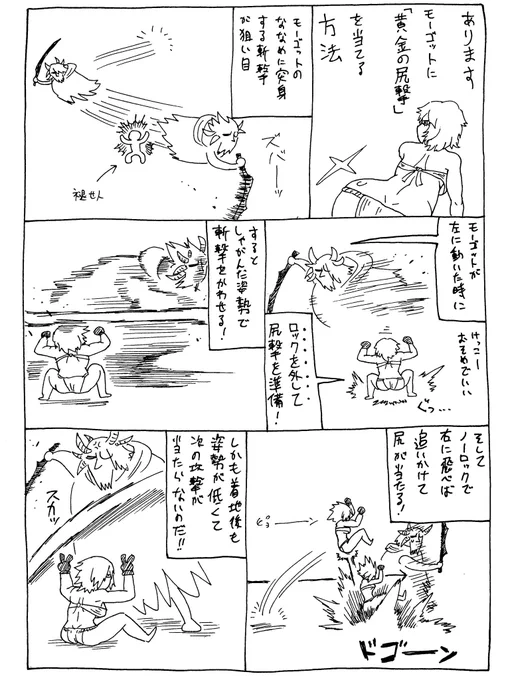 あります
モーゴットに
「黄金の尻撃」
を当てる
方法
モーゴットの
ななめに突身
する斬撃
が狙い目
ズバーッ
褪せ人
モーゴットが
左に動いた時に
けっこー
おそめでいい
ロックを外して
尻撃を準備!
ぐっ…
すると
しゃがんだ姿勢で
斬撃をかわせる!
そして
ノーロックで
右に飛べば
追いかけて
尻が当たる!
ピョ
ドゴーン
しかも着地後も
姿勢が低くて
次の攻撃が
当たらないのだ!!
スカッ